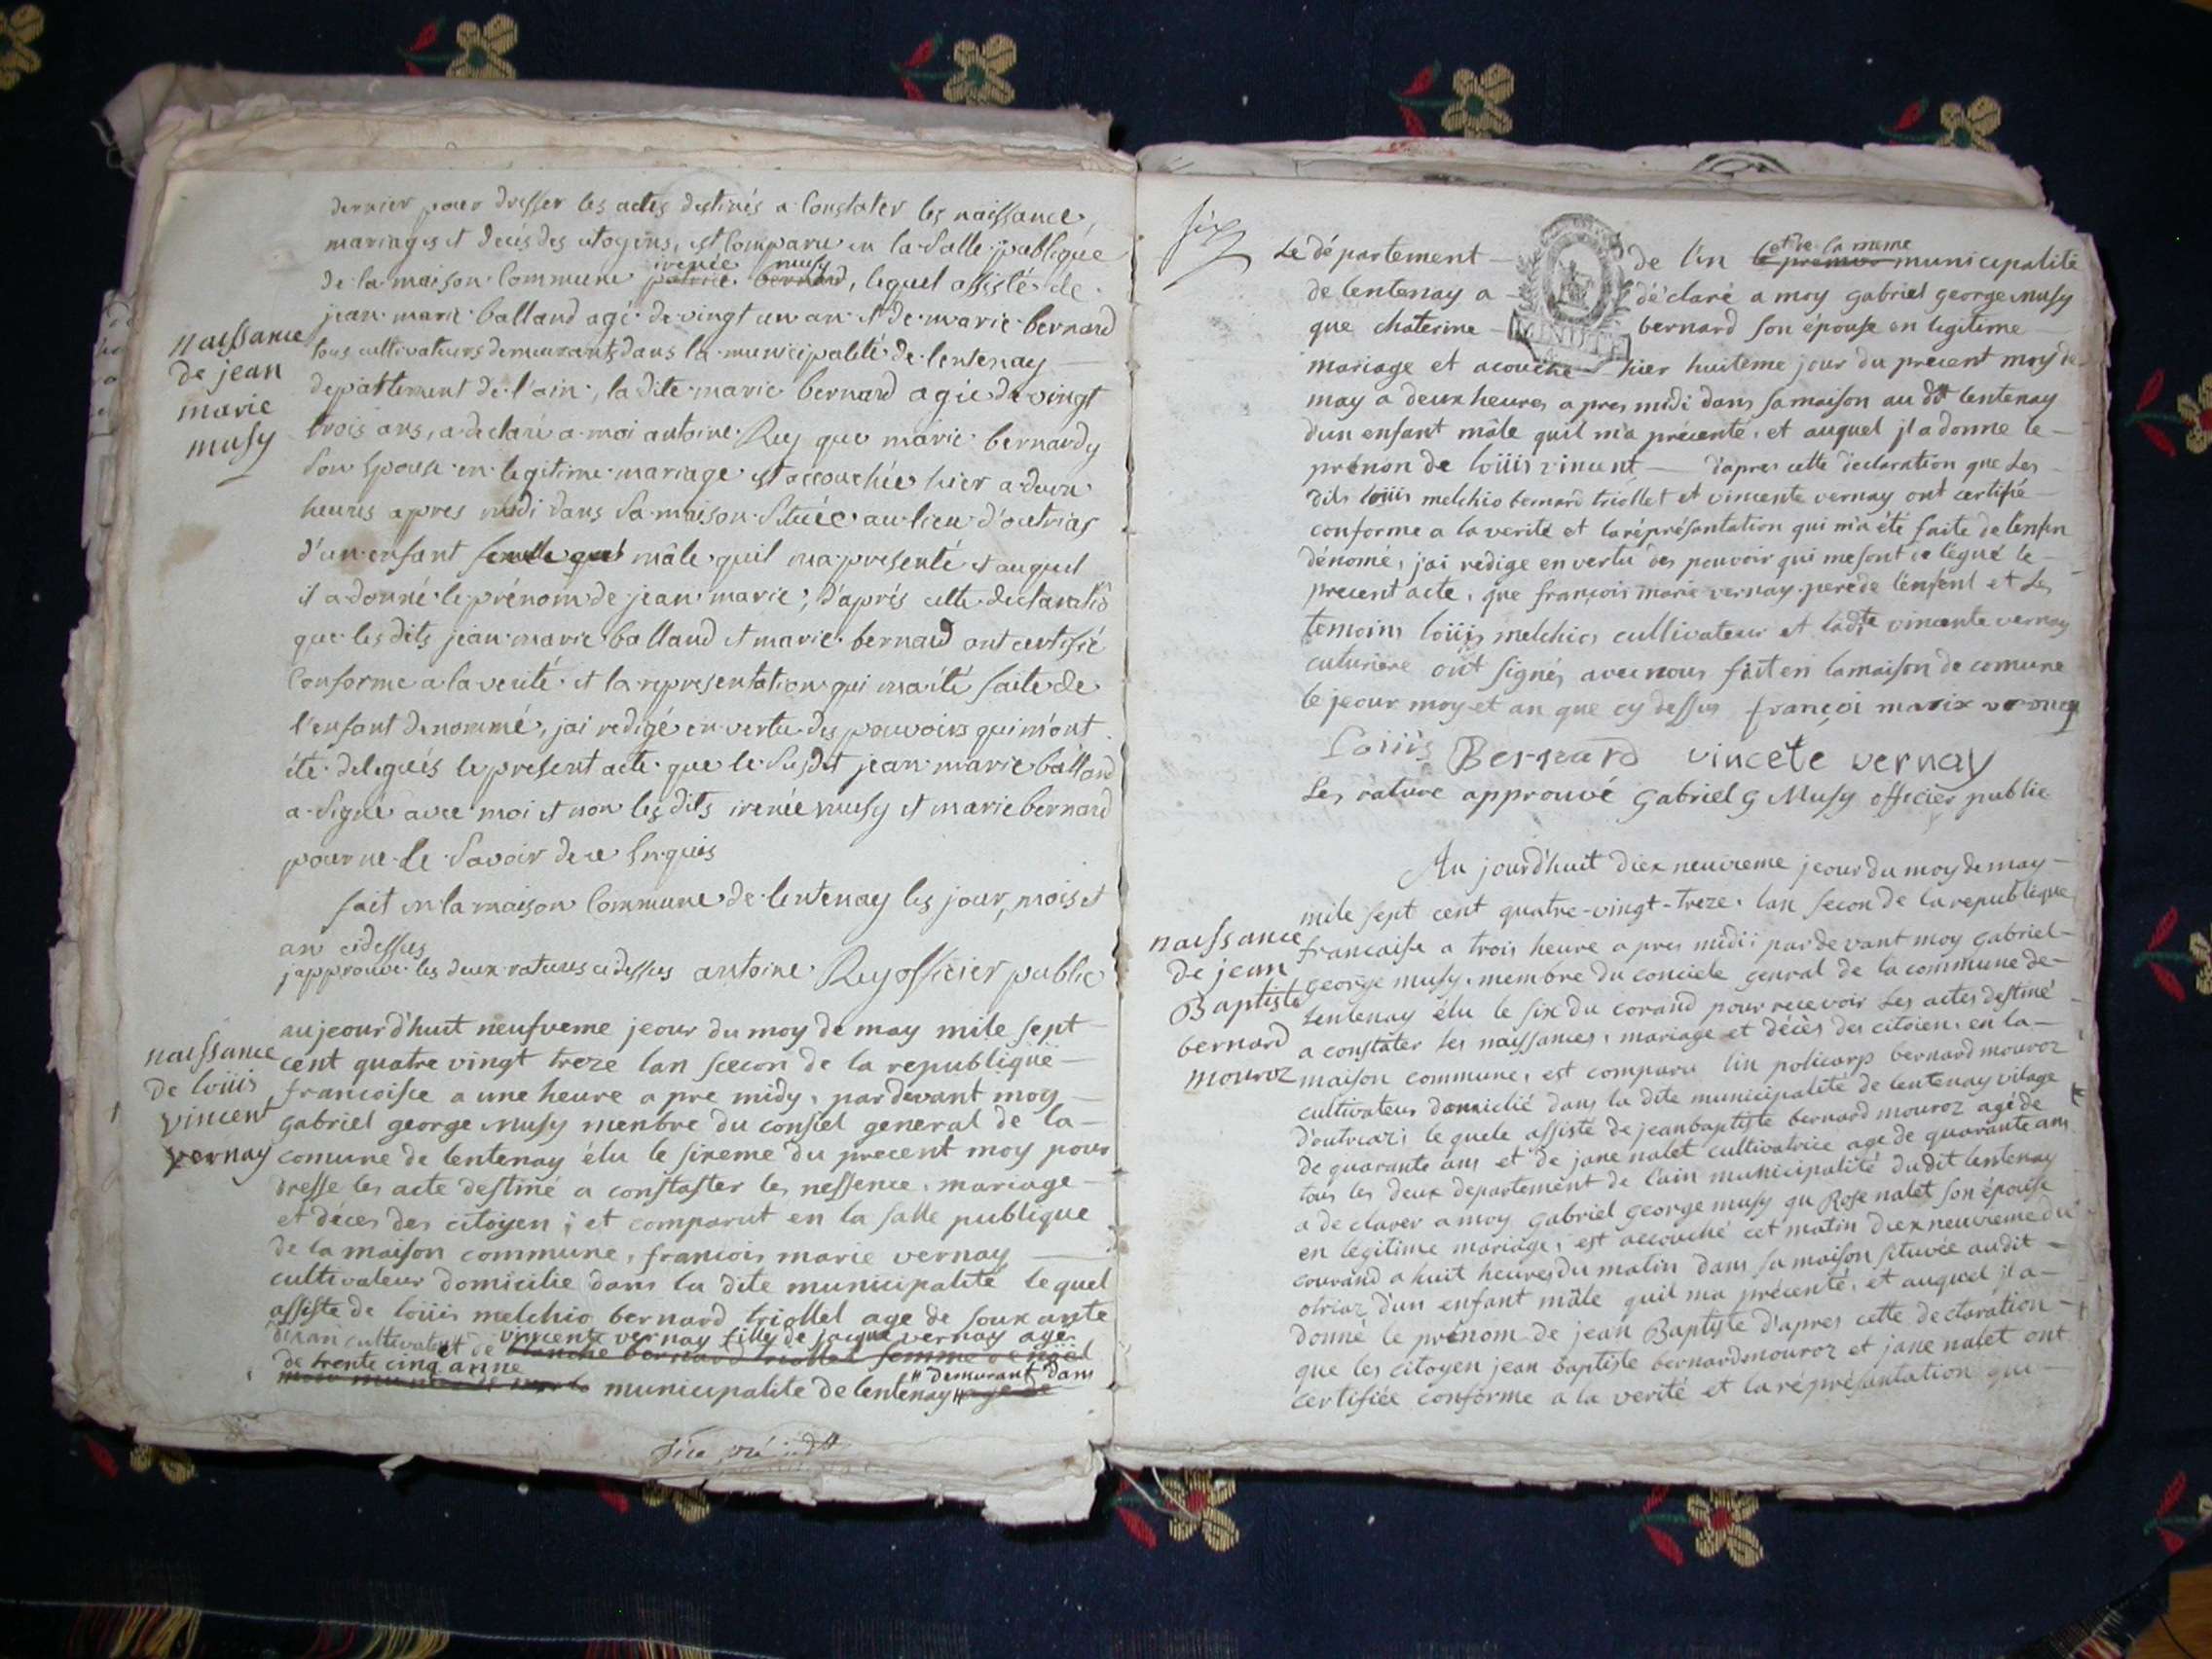 dernier pour dresser les actes destinés a Constater les naissance,
mariages et décès des citoyens, est Comparu en la Salle publique
irenée musy
de la maison Commune, lequel assisté de
jean marie balland agé de vingt un an et de marie bernard
naissance
de jean
marie
musy
tous cultivateurs demeurants dans la municipalité de lentenay
departement de l'ain, la dite marie bernard agée de vingt
trois ans, a declaré a moi antoine Rey que marie bernardy
Son Epouse en legitime mariage est accouchée hier a deux
heures apres midi dans Sa maison Située au lieu d'outriar
d'un enfant mâle quil ma presenté et auquel
il a donné le prénom de jean marie, d'aprés cette declaratiõ
que les dits jean marie balland et marie bernard ont certifié
Conforme a la verité et la representation qui ma été faite de
l'enfant denommé, jai redigé en vertu des pouvoirs qui m'ont
été delegués le present acte que le Susdit jean marie balland
a Signé avec moi et non les dits irenée musy et marie bernard
pour ne le Savoir de ce Enquis
fait en la maison Commune de lentenay les jour, mois et
an cidessus
japprouve les deux ratures cidessus antoine Rey officier public
naissance
de loüis
vincent
vernay
aujeourd'huit neufveme jeour du moy de may mile sept
cent quatre vingt treze lan scecon de la republique
francoisce a une heure a pre midy, par devant moy
Gabriel george Musy menbre du consiel general de la
comune de lentenay élu le sixeme du precent moy pour
dresse les acte destiné a constaster les nessence, mariage
et déces des citoyen; et comparut en la salle publique
de la maison commune, francois marie vernay
cultivateur domicilie dans la dite municipalité lequel
assiste de loüis melchio bernard triollet age de soux ante
dix an cultivateur et de vincente vernay fille de jaque vernay age
de trente cinq anne
municipalite de lentenay " demurant dans
six
Le département de l'in et de la meme municipalité
de lentenay a déclaré a moy gabriel george Musy
que chaterine bernard son épouse en legitime
mariage et acouche hier huiteme jour du precent moy de
may a deux heures apres midi dans sa maison au dit lentenay
d'un enfant mâle quil m'a précenté, et auquel jl a donne le
prénon de loüis vincent d'apres cette déclaration que Les
dits loüis melchio bernard triollet et vincente vernay ont certifié
conforme a la verité et la répresantation qui m'a été faite de l'enfen
dénomé, j'ai redige en vertu des pouvoir qui me sont delégué le
precent acte, que françois marie vernay pere de l'enfent et Les
temoins loüis melchior cultivateur et ladte vincente vernay
cuturiere ont signés avec nous fait en la maison de comune
le jeour moy et an que cy dessus françoi marix vernay
Loiiis Bernard vincete vernay
Les rature approuvé Gabriel G Musy officier public
Au jourd'huit diex neuvieme jeour du moy de may
mile sept cent quatre-vingt-treze. lan secon de la republique
naissance
de jean
Baptiste
bernard
mouroz
francaise a trois heure a pres midi; par devant moy gabriel
george musy, membre du conciele genral de la commune de
Lentenay élu le six du corand pour recevoir Les actes destiné
a constater les naissances, mariage et décès des citoien, en la
maison commune, est comparu lin policarp bernard mouroz
cultivateur domicilié dans la dite municipalité de lentenay vilage
d'outriaz; le quele assiste de jean baptiste bernard mouroz agé de
de quarante ans et de jane nalet cultivatrice age de quarante ans
tous les deux departement de l'ain municipalité dudit lentenay
a de clarer a moy Gabriel George musy qu Rose nalet son épouse
en legitime mariage, est accouché cet matin diex neuvieme du
courand a huit heures du matin dans sa maison situvée audit
otriaz d'un enfant mâle quil ma précenté, et auquel jl a
donné le prénom de jean Baptiste d'apres cette declaration
que les citoyen jean baptiste bernard mouroz et jane nalet ont
certifiée conforme a la verité et la répresantation qui